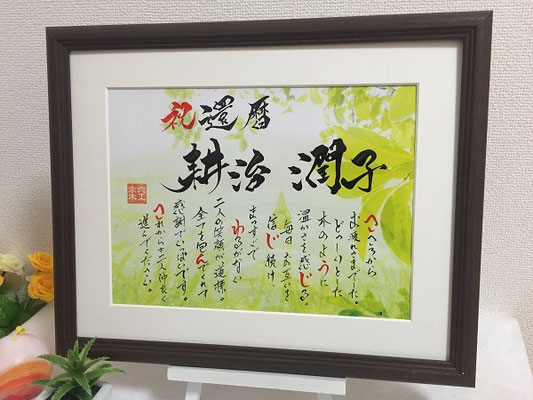 祝還暦
耕治 潤子
こころから
お疲れさまでした。
どっしりとした
木のように
温かさを感じる。
毎日お互いを
信じ続け、
まっすぐで
ゆるがない
二人の笑顔が道標。
全てを包んでくれて
感謝でいっぱいです。
これからも二人仲良く
進んでください。